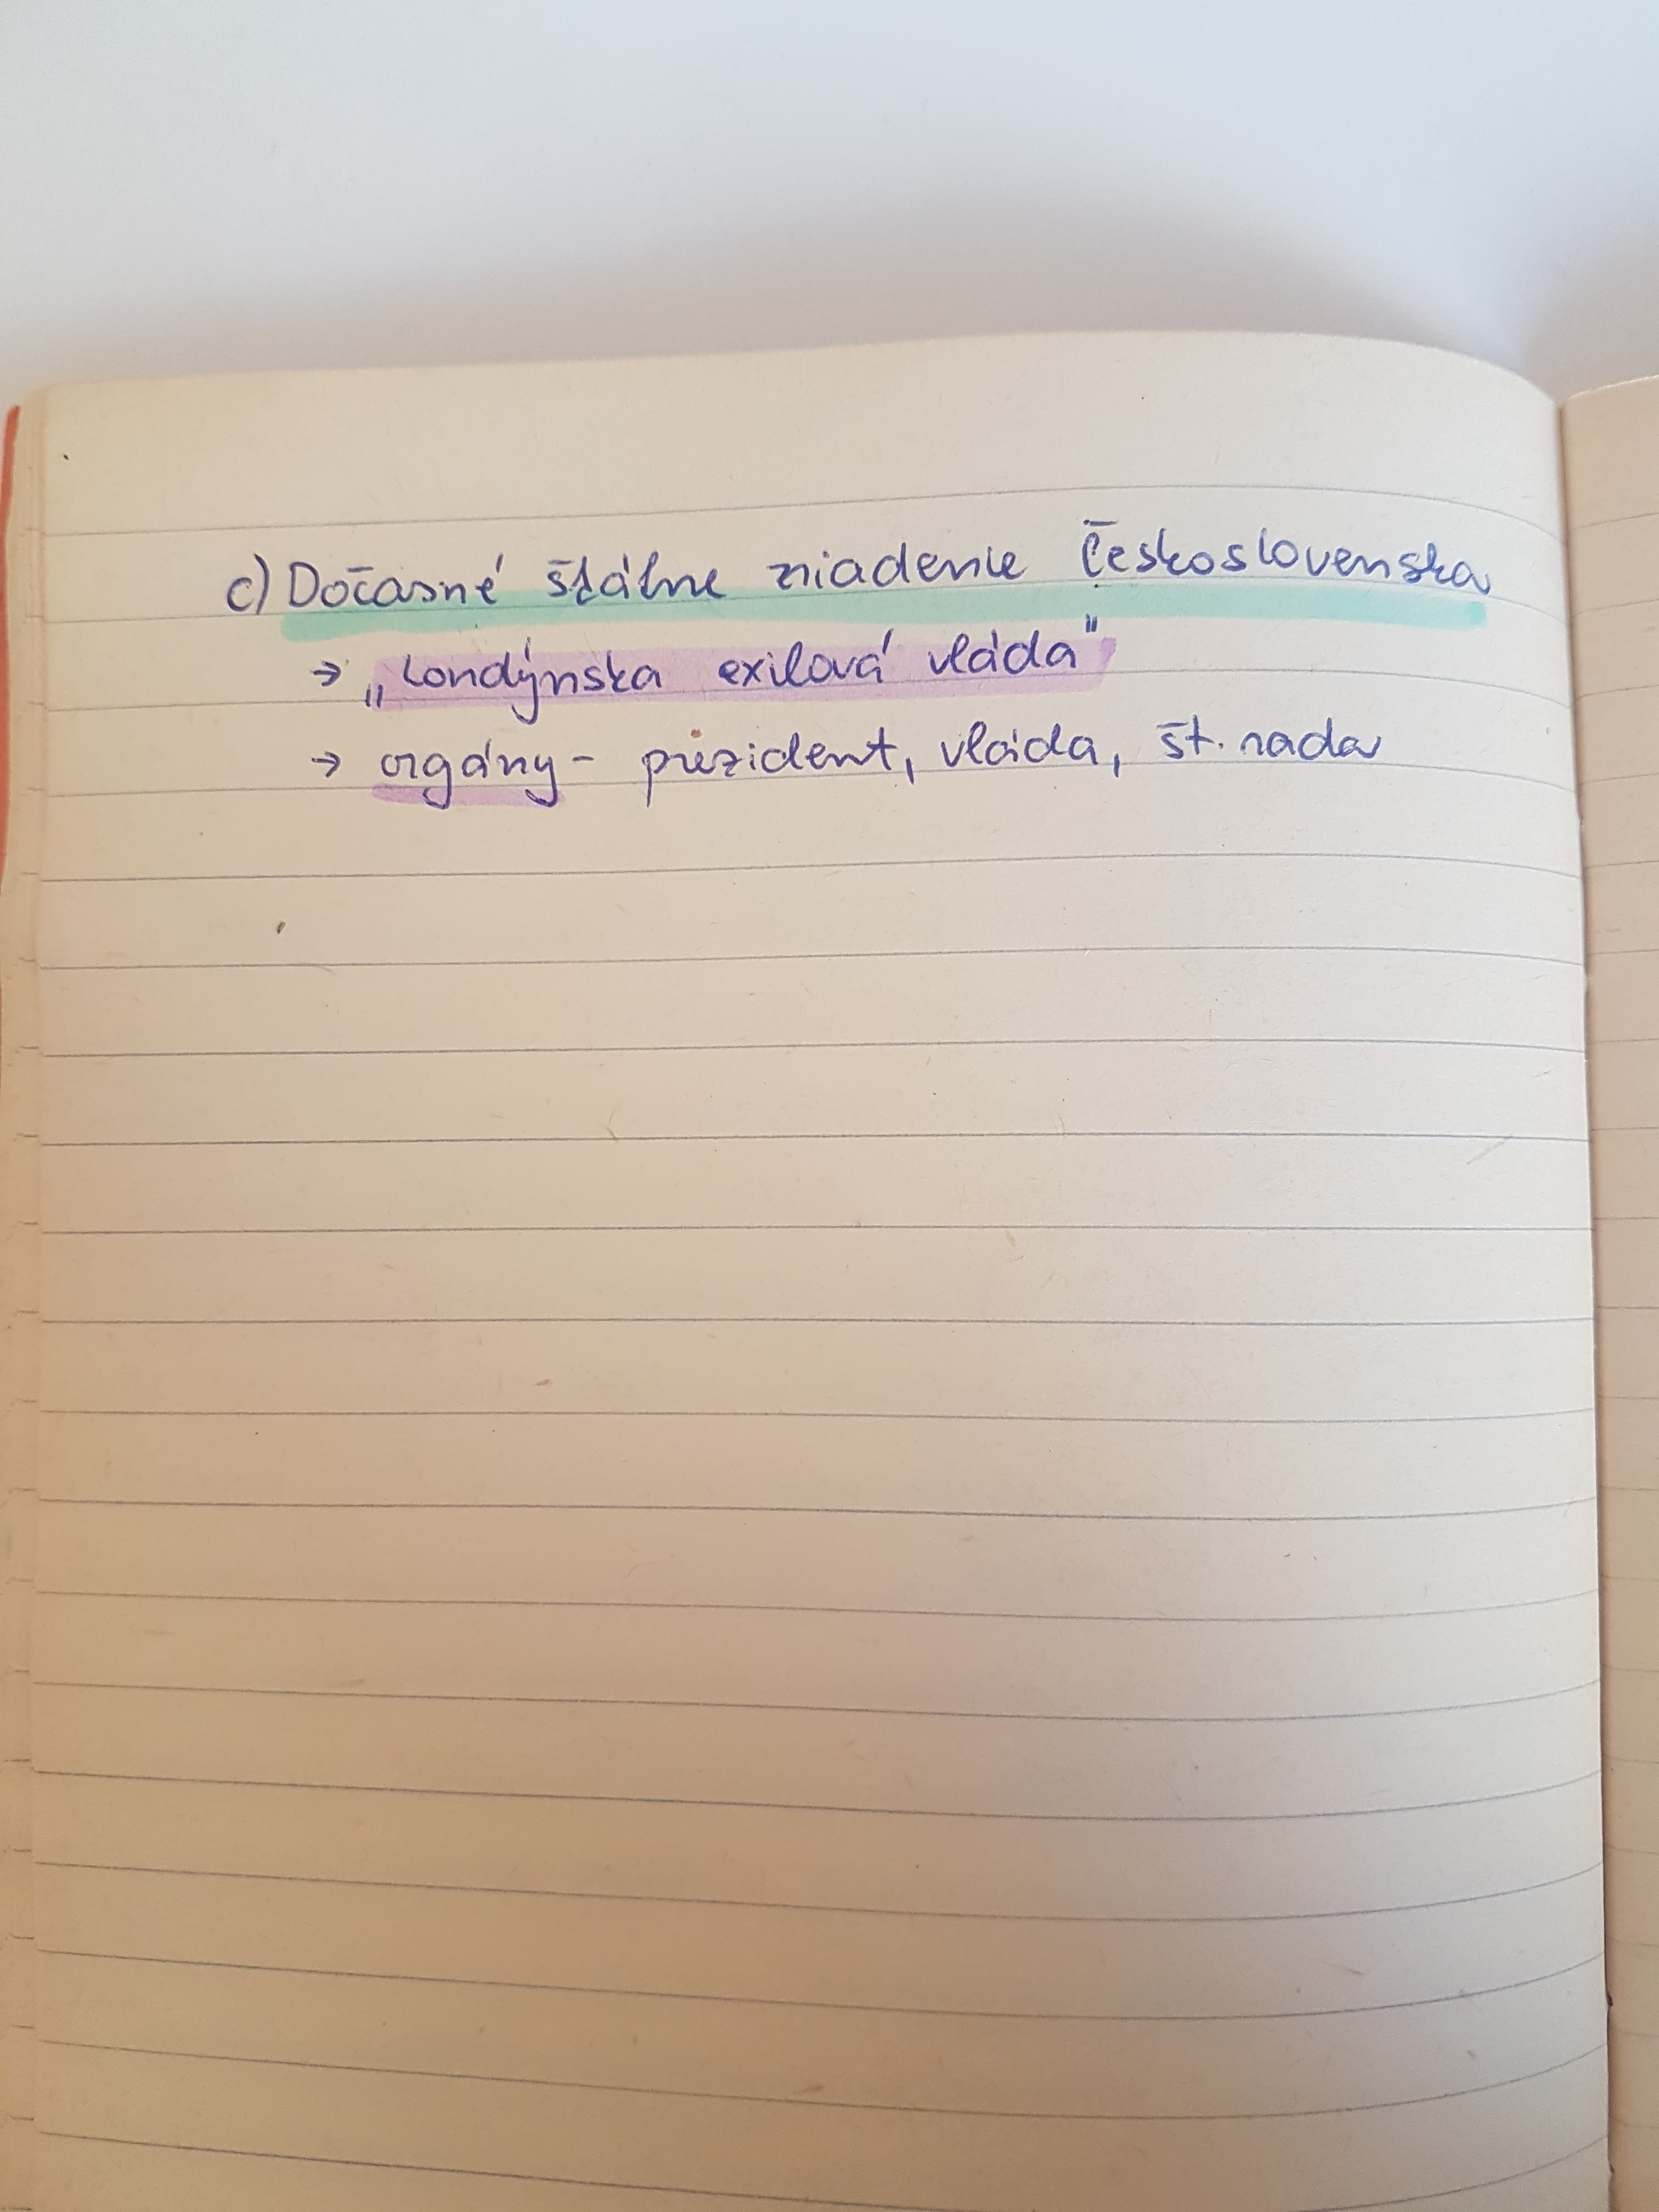 c) Dočasné štátne zriadenie Československa
→ „Londýnska exilová vláda"
→ orgány - prezident, vláda, št. rada